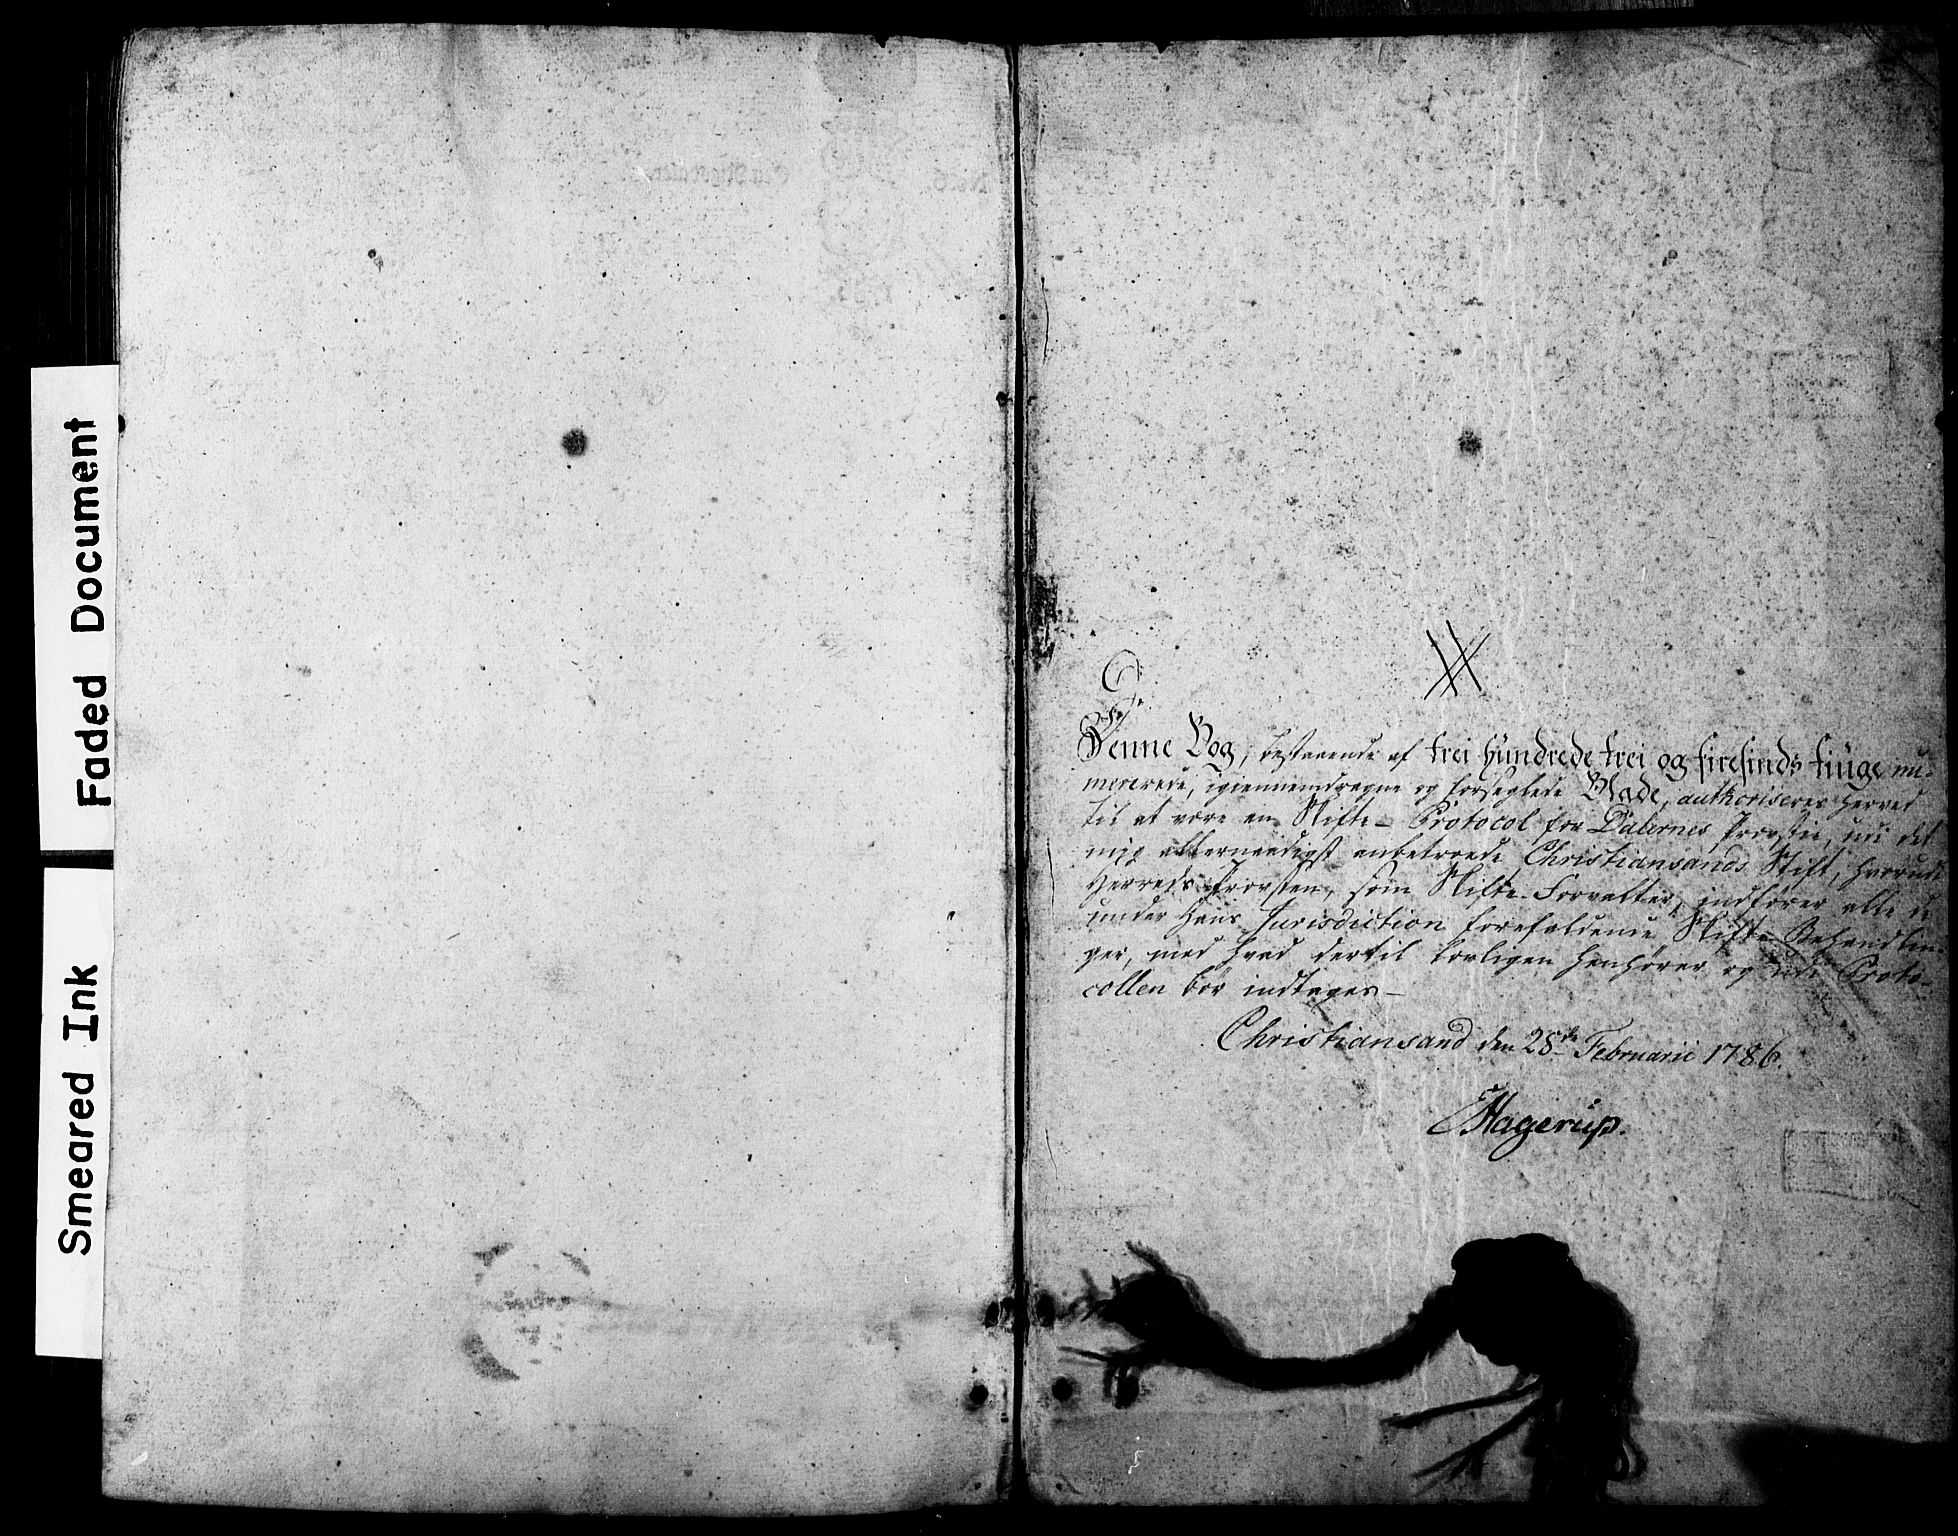 Faded Document
Smeared Ink
Denne Bog, bestaaende af trei Hundrede trei og firesinds tiuge nu-
mererede, igiennemdragne og forseglede Blade, authoriseres herved
til at være en Skifte-Protocol for Dalernes Provstie, udi det
mig allernaadigst anbetroede Christiansands Stift, hvorudi
Herreds-Provsten, som Skifte-Forvalter, indfører alle de
under hans Jurisdiction forefaldende Skifte-Behandlin-
ger, med hvad dertil lovligen henhører og udi Proto-
collen bør indtages-
Christiansand den 28de Februarii 1786.
Hagerup.